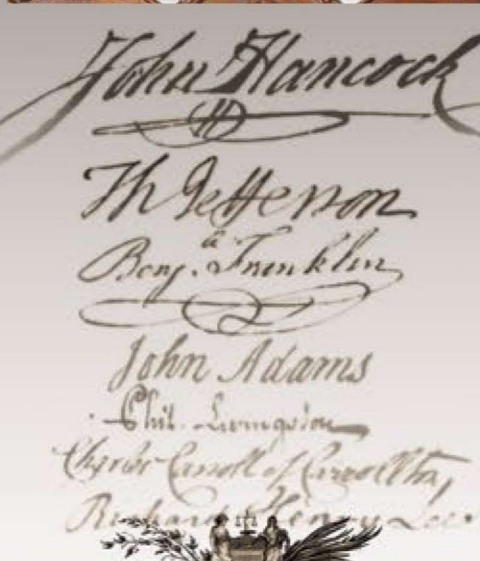 John Hancock
Th Jefferson
Benj. Franklin
John Adams
Phil. Livingston
Charles Carroll of Carrollton,
Richard Henry Lee